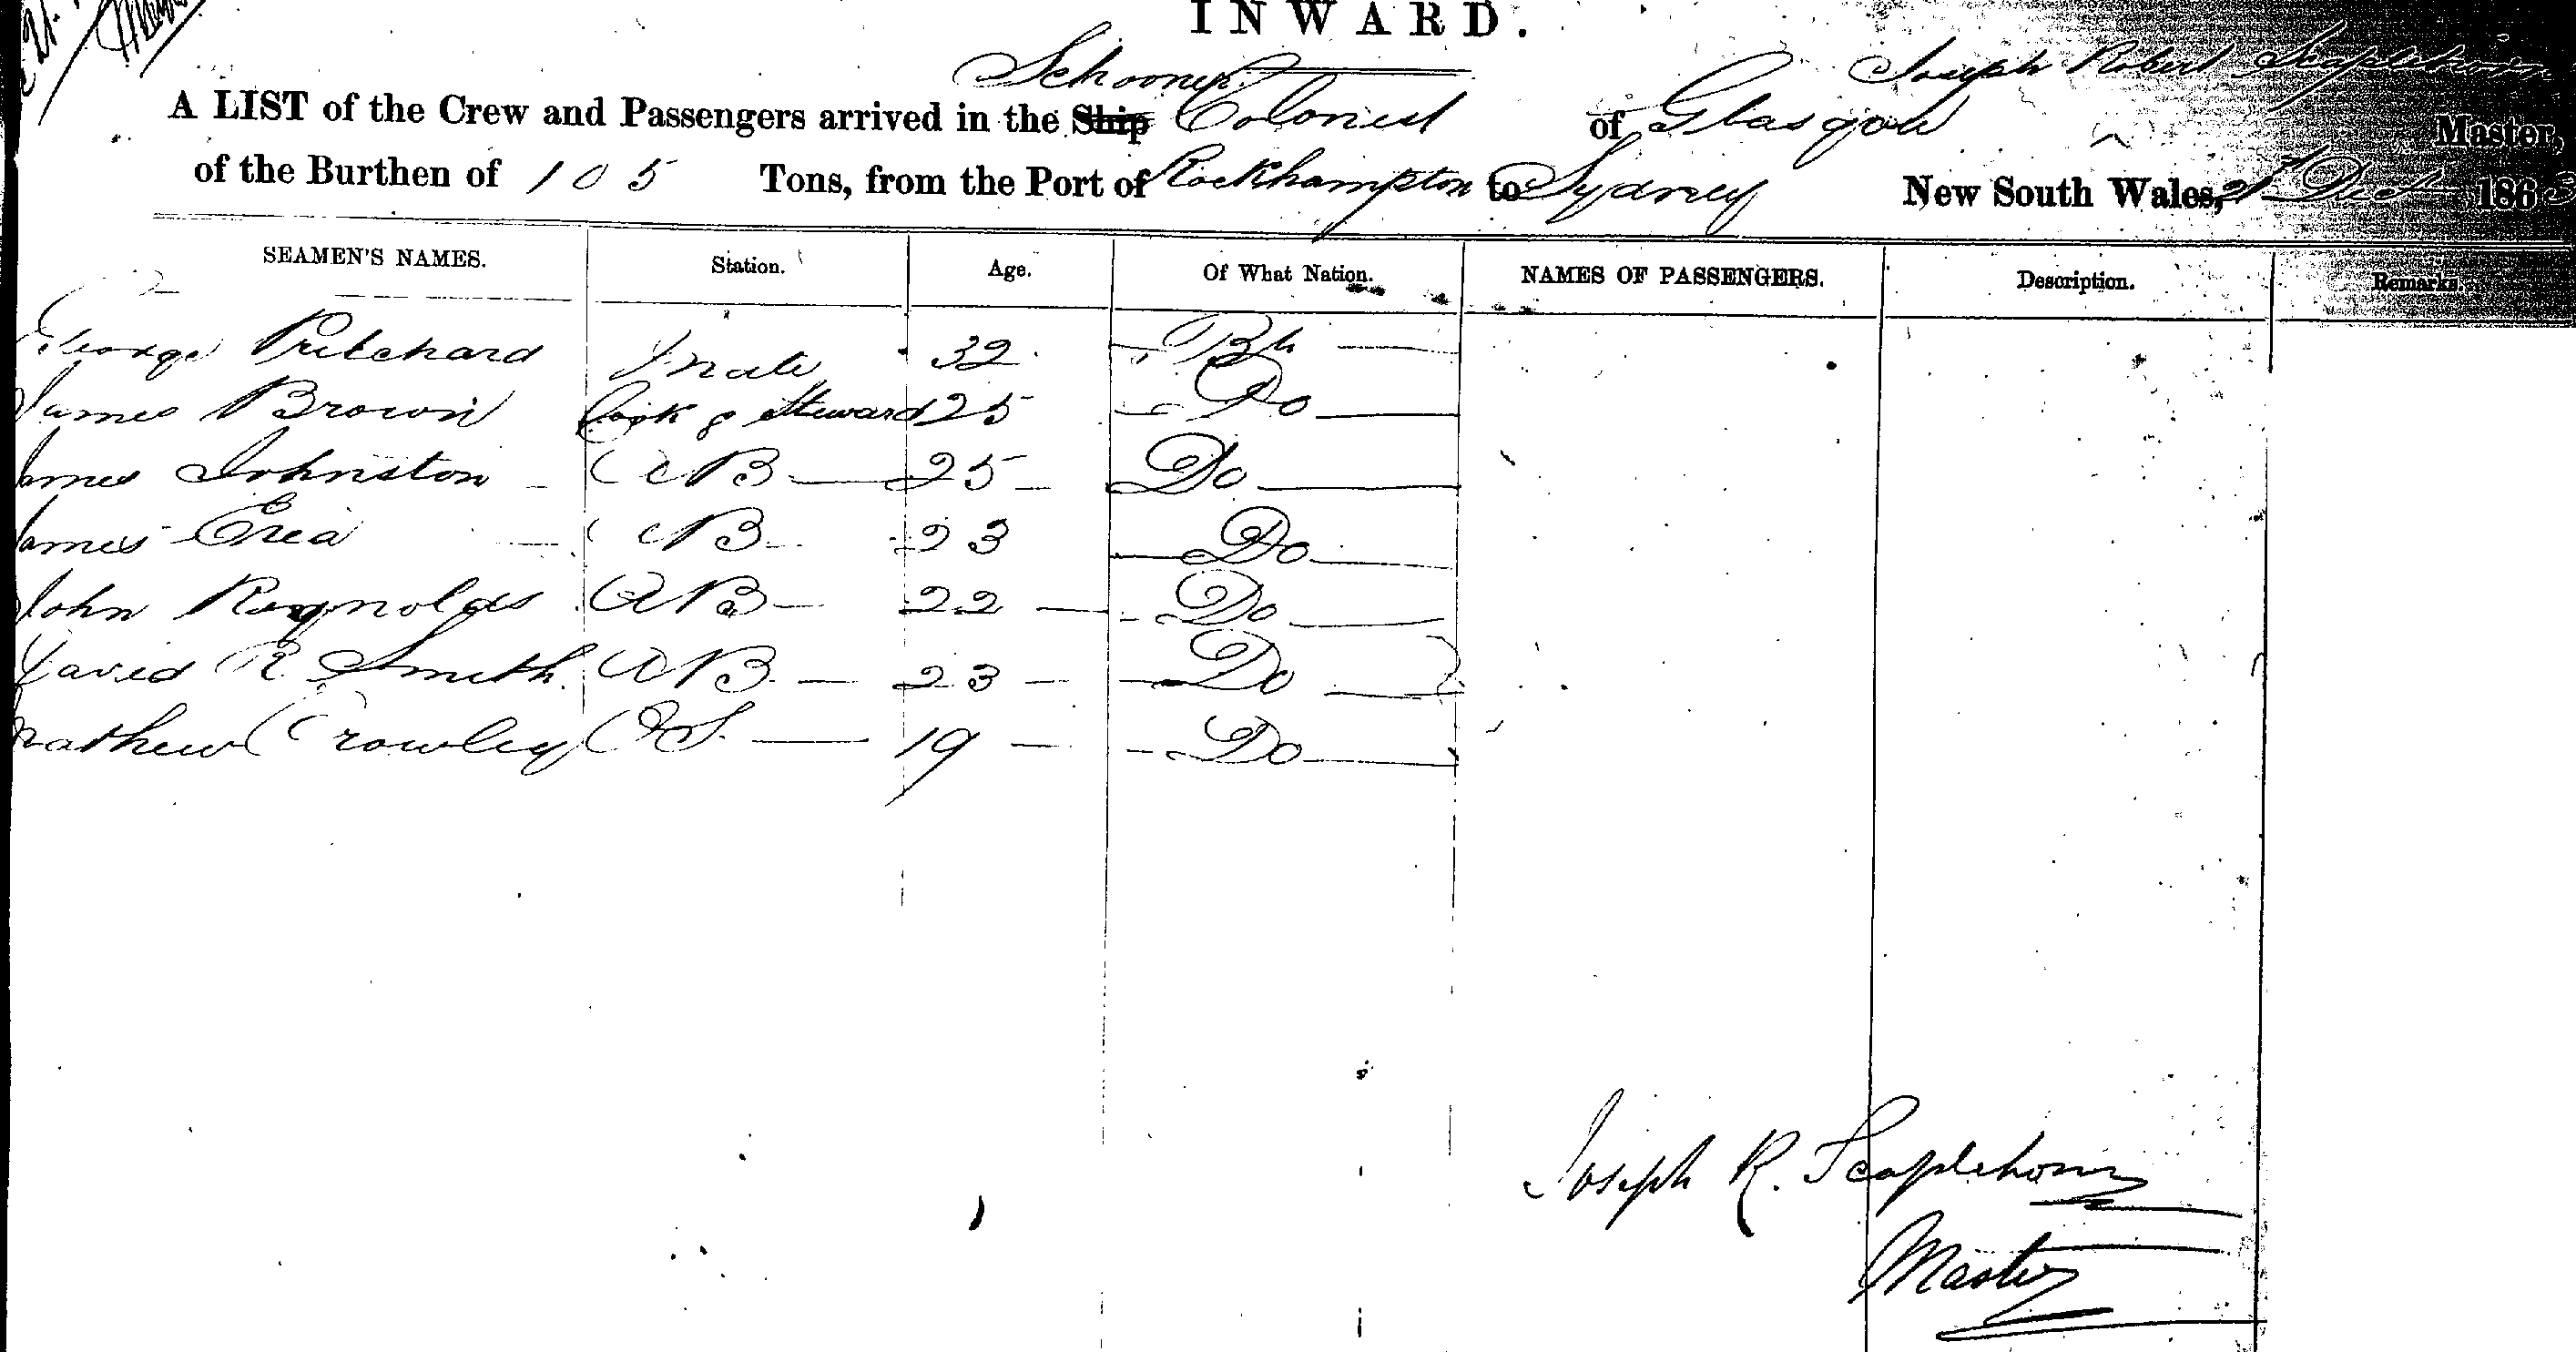 INWARD.
Schooner Joseph Robert Scaplehorn
A LIST of the Crew and Passengers arrived in the Ship Colonist of Glasgow Master,
of the Burthen of 105 Tons, from the Port of Rockhampton to Sydney New South Wales, 21st Dec 1863
SEAMEN'S NAMES. Station. Age. Of What Nation. NAMES OF PASSENGERS. Description. Remarks.
George Pritchard Mate 32 Bh
James Brown Cook & Steward 25 Do
James Johnston AB 25 Do
James AB 23 Do
John Reynolds AB 22 Do
David R. Smith AB 23 Do
Mathew Crowley OS 19 Do
Joseph R. Scaplehorn
Master